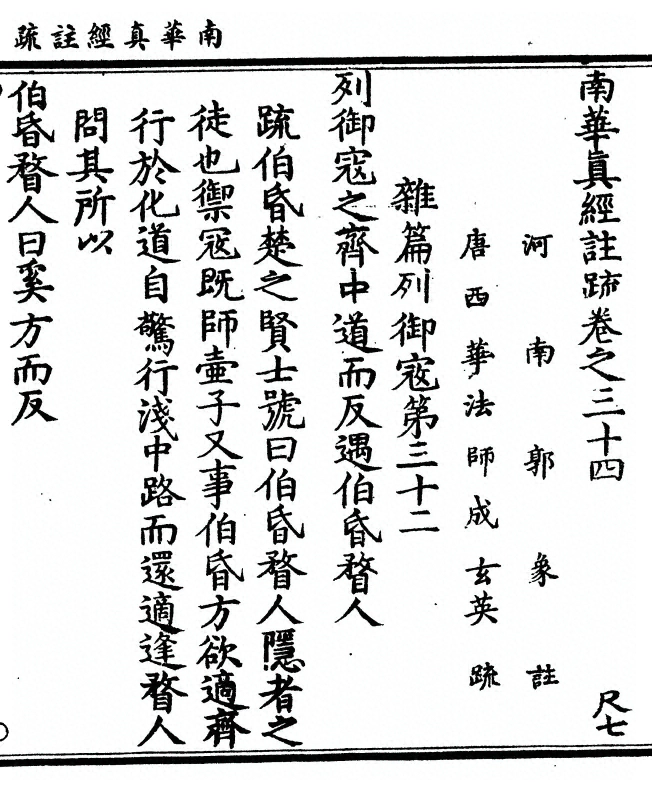 南華真經註疏
南華眞經註䟽卷之三十四
尺七
河南郭象註
唐西華法師成玄英䟽
雜篇列御寇第三十二
列御寇之齊中道而反遇伯昏瞀人
疏伯昏楚之賢士號曰伯昏瞀人隱者之
徒也禦寇既師壷子又事伯昏方欲適齊
行於化道自驚行淺中路而還適逢瞀人
問其所以
伯昏瞀人曰奚方而反